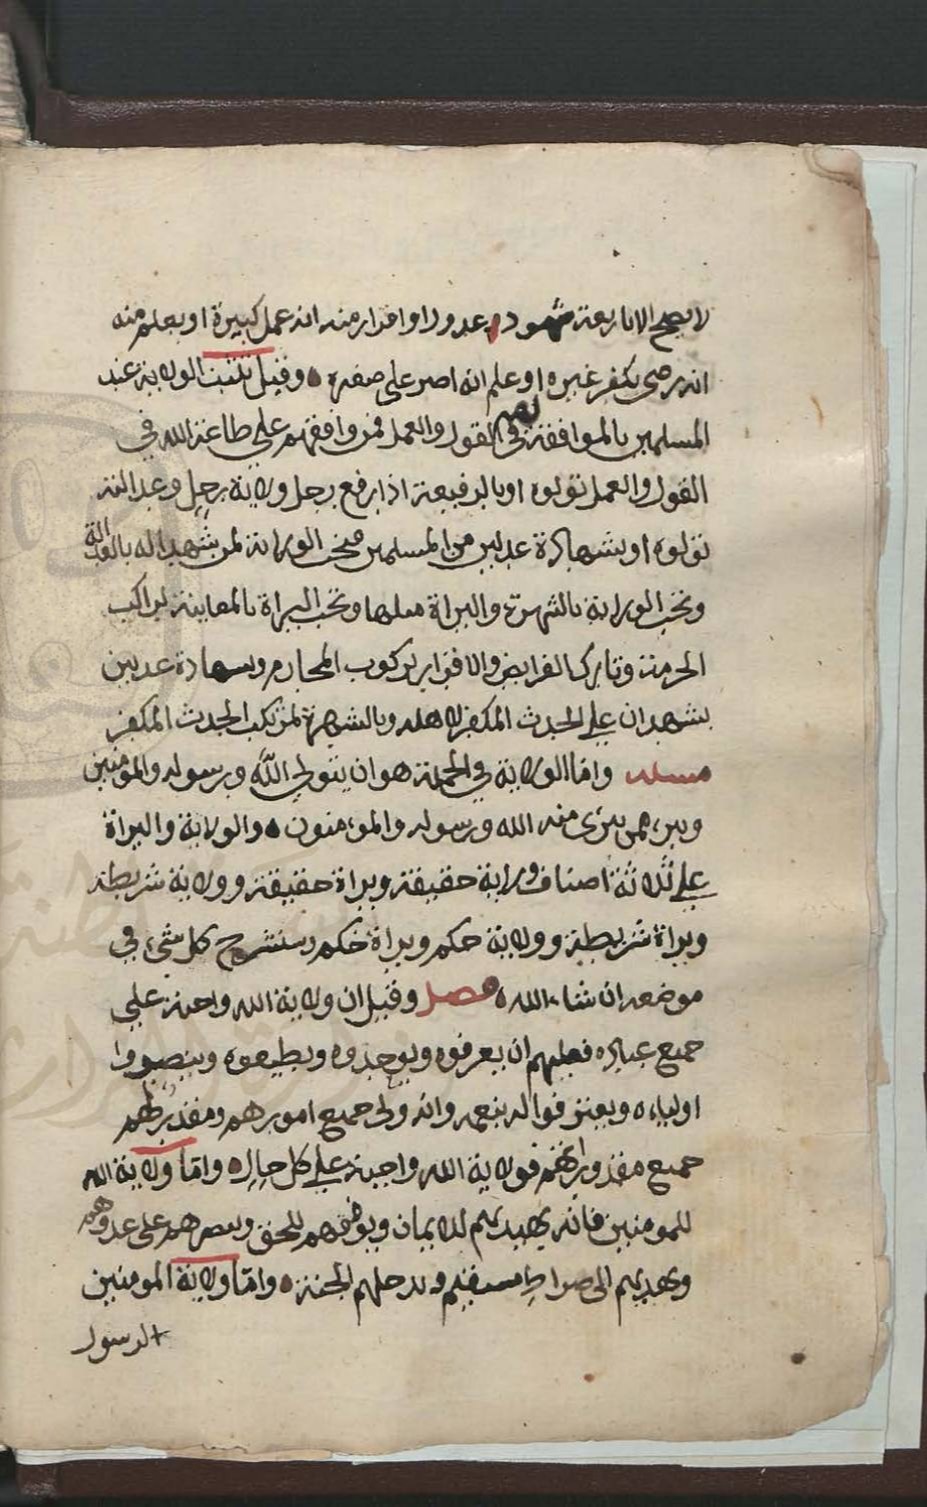 لا يصح الا باربعة شهود عدول او اقرار منه انه عمل كبيرة او يعلم منه
انه رضي بكفر غيره او علم انه اصر على صغيرة وقيل تثبت الولاية عند
المسلمين بالموافقة لهم في القول والعمل فمن وافقهم على طاعة الله في
القول والعمل تولوه او بالرفيعة اذا رفع رجل ولاية رجل وعدالته
تولوه او بشهادة عدلين من المسلمين فتجب الولاية لمن يشهدا له بالعدالة
وتجب الولاية بالشهرة والبراة مثلها وتجب البراة بالمعاينة لراكب
الحرمة وتارك الفرايض والاقرار لركوب المحارم وبشهادة عدلين
يشهدان على الحدث المكفر لاهله وبالشهرة لمرتكب الحدث المكفر
مسلة واما الولاية في الجملة هو ان يتولى الله ورسوله والمؤمنين
ويبرء ممن برئ منه الله ورسوله والمؤمنون والولاية والبراة
على ثلاثة اصناف ولاية حقيقة وبراة حقيقة وولاية شريطة
وبراة شريطة وولاية حكم وبراة حكم وسنشرح كل شيء في
موضعه ان شاء الله فصل وقيل ان ولاية الله واجبة على
جميع عباده فعليهم ان يعرفوه ويوحدوه ويطيعوه وينصروا
اولياءه ويعترفوا له بنعمه وانه ولي جميع امورهم ومقدر لهم
جميع مقدوراتهم فولاية الله واجبة على كل حال واما ولاية الله
للمومنين فانه يهديهم للايمان ويوفقهم للحق وينصرهم على عدوهم
ويهديهم الى صراط مستقيم ويدخلهم الجنة واما ولاية المومنين
لرسول